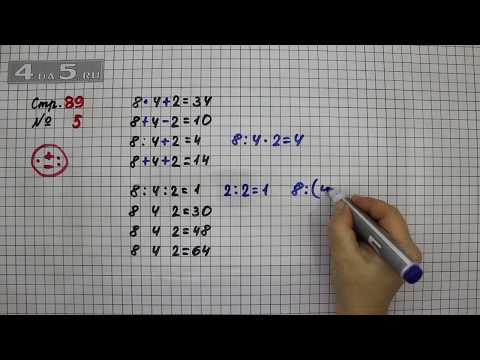 4 на 5.RU
Стр. 89
№ 5
· + - :
8 · 4 + 2 = 34
8 + 4 - 2 = 10
8 : 4 + 2 = 4 8 : 4 · 2 = 4
8 + 4 + 2 = 14
8 : 4 : 2 = 1 2 : 2 = 1 8 : (4
8 4 2 = 30
8 4 2 = 48
8 4 2 = 64